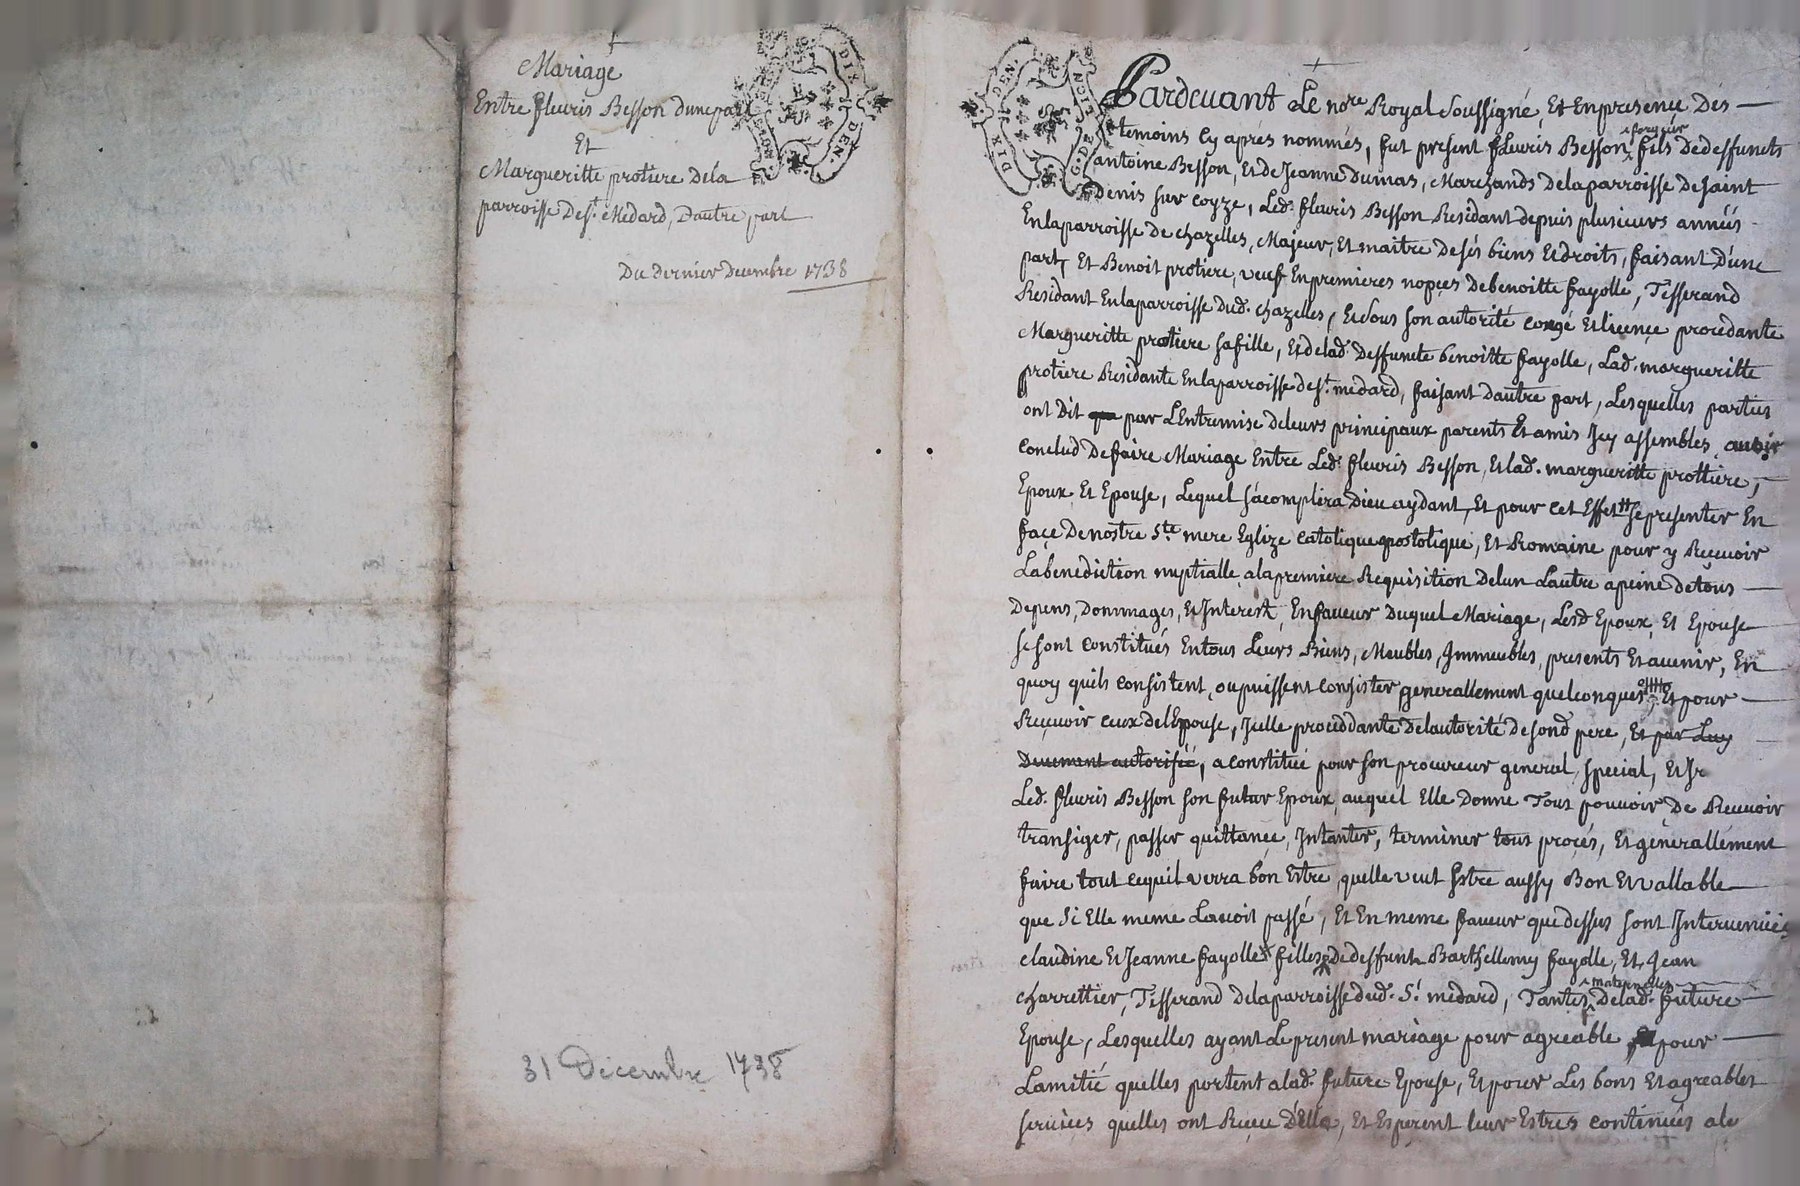 Mariage
Entre fleuris Besson dune part
Et
Margueritte protiere Dela
parroisse De st. Medard, Dautre part
Du dernier Decembre 1738
31 Décembre 1738
DIX DEN.
DIX DEN.
Pardevant Le nore Royal Soussigné, Et En presence Des
temoins Cy aprés nommés, fut present fleuris Besson fils De deffuncts
antoine Besson, Et de Jeanne Dumas, Marchands De la parroisse De Saint
Denis sur coyze, Led. fleuris Besson Residant depuis plusieurs années
En la parroisse De chazelles, Majeur, Et maitre de sés biens Et droits, faisant D'une
part, Et Benoit protiere, veuf En premieres nopces De benoitte fayolle, Tisserand
Residant En la parroisse Dud. chazelles, Et sous son autorité congé Et licençe procedante
Margueritte protiere sa fille, Et de lad. Deffuncte benoitte fayolle, Lad. margueritte
protiere Residante En la parroisse de st. medard, faisant Dautre part, Lesquelles parties
ont Dit par L'Entremise De leurs principaux parents Et amis Jcy assembles avoir
conclud De faire Mariage Entre Led. fleuris Besson, Et lad. margueritte prottiere,
Epoux Et Epouse, Lequel s'acomplira Dieu aydant, Et pour cet Effet se presenter En
façe De nostre Ste. mere Eglize Catolique apostolique, Et Romaine pour y Recevoir
La benediction nuptialle, a la premiere Requisition De lun Lautre a peine de tous
Depens, Dommages, Et Interest, En faveur Duquel Mariage, Lesd Epoux, Et Epouse
se sont constitués En tous Leurs Biens, Meubles, Jmmeubles, presents Et avenir, En
quoy quils consistent, ou puissent consister generallement quelconques, Et pour
Recevoir ceux de l'Epouse, Jcelle proceddante De lautorité de sond pere, Et par Luy
Duement autorisée, a constitué pour son procureur general, special, Et Jr
Led. fleuris Besson son futur Epoux, auquel Elle Donne Tout pouvoir De Recevoir
transiger, passer quittance, Intanter, terminer tous procés, Et generallement
faire tout ce quil verra bon Estre, quelle veut Estre aussy Bon Et vallable
que Si Elle meme Lavoit passé, Et En meme faveur que Dessus sont Intervenües
Claudine Et Jeanne fayolle filles De deffunt Barthellemy fayolle, Et Jean
Charrettier, Tisserand De la parroisse dud. St. medard, Tantes maternelles De lad. future
Epouse, Lesquelles ayant Le present mariage pour agreable, Et pour
Lamitié quelles portent a lad. future Epouse, Et pour Les bons Et agreables
services quelles ont Receu D'Elle, Et Esperent leur Estres continués a le